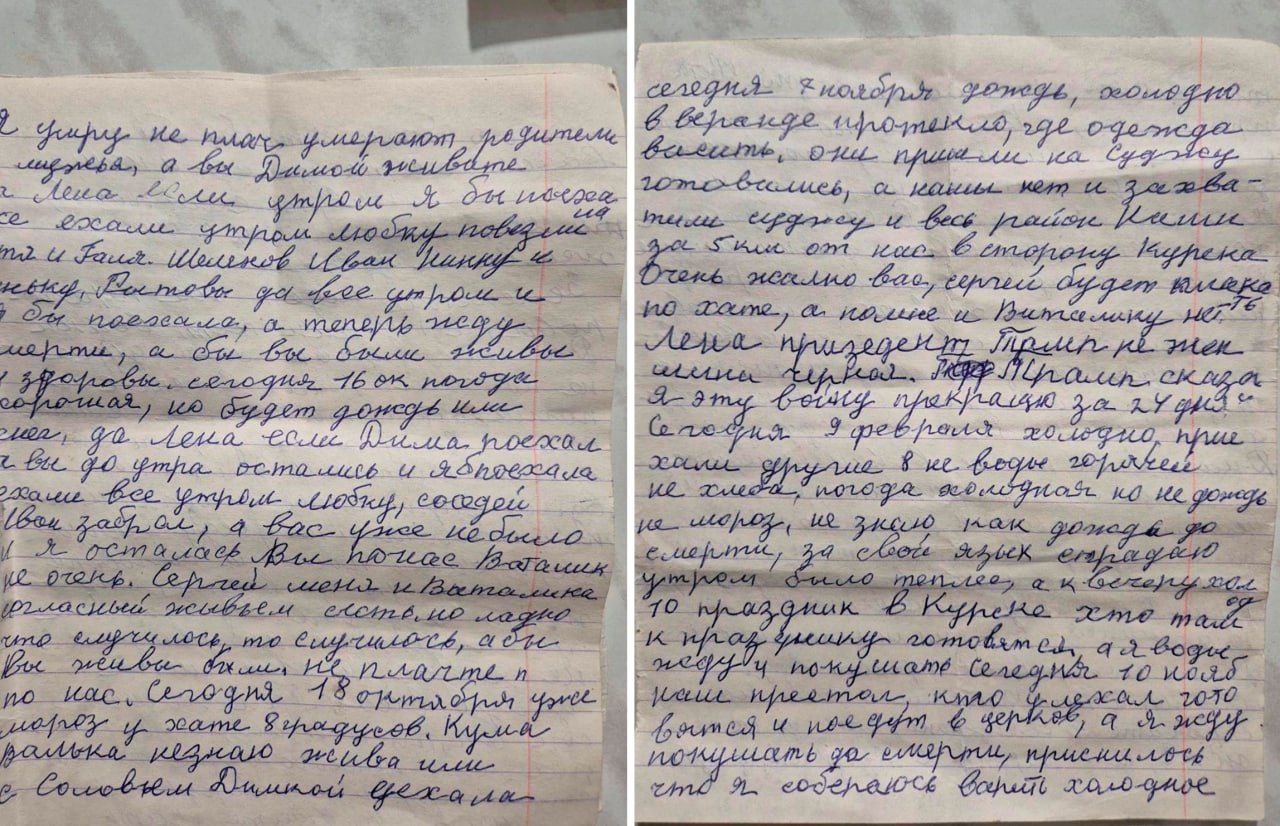 я умру не плач умерают родители
мужья, а вы Димой живите
а Лена если утром я бы поеха
се ехали утром любку повезли ла
тя и Галя. Шеленов Иван Нинку и
ньку, Ростовы да все утром и
я бы поехала, а теперь жду
мерти, а бы вы были живы
и здоровы. сегодня 16 ок погода
хорошая, но будет дождь или
снег, да Лена если Дима поехал
а вы до утра остались и я б поехала
ехали все утром любку, соседей
Иван забрал, а вас уже не было
и я осталась Вы по нас Виталик
не очень. Сергей меня и Виталика
огласный живьём сьесть, но ладно
что случилось, то случилось, абы
Вы живы были. не плачте п
по нас. Сегодня 18 октября уже
мороз у хате 8 градусов. Кума
Валька незнаю жива или
с Соловьем Димкой ехала
сегодня 7 ноября дождь, холодно
в веранде протекло, где одежда
висить. они пришли на Суджу
готовились, а нашы нет и захва-
тили суджу и весь район Наши
за 5 км от нас в сторону Курска
Очень жално вас, сергей будет плака
по хате, а помне и Виталику нет. ть
Лена призедент Трамп не жен
щина черная. Трамп сказа
я эту войну прекращю за 24 дня"
Сегодня 9 февраля холодно, прие
хали другие 8 не воды горячей
не хлеба, погода холодная но не дождь
не мороз, не знаю как дождь до
смерти, за свой язык страдаю
утром было теплее, а к вечеру хол
10 праздник в Курске хто там од
к празднику готовятся, а я воды
жду и покушать сегодня 10 нояб
наш престол, кто уехал гото
вятся и поедут в церков, а я жду
покушать до смерти, приснилось
что я собераюсь варить холодное